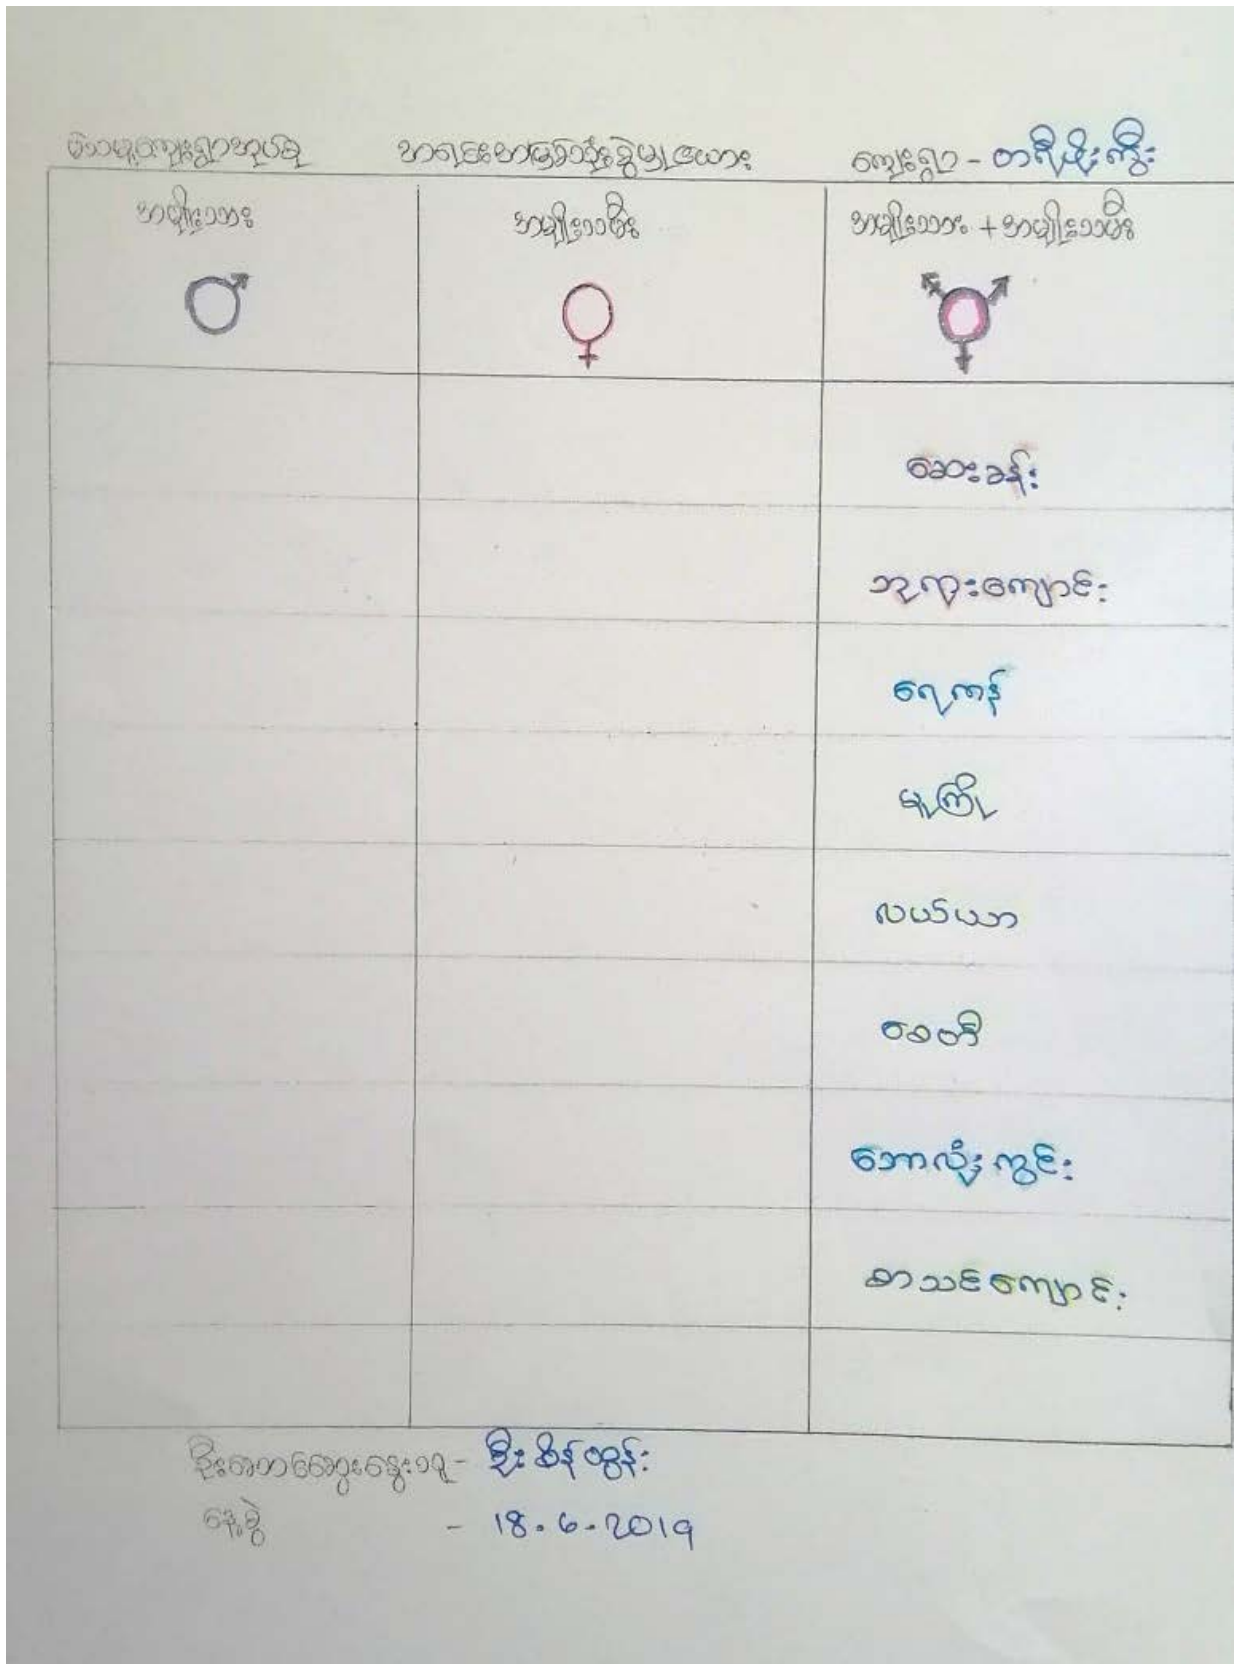 မဲသမူကျေးရွာအုပ်စု အရင်းအမြစ်သုံးစွဲမှုဇယား ကျေးရွာ - တရီဖိုးကွီး
အမျိုးသား အမျိုးသမီး အမျိုးသား + အမျိုးသမီး
ဆေးခန်း
ဘုရားကျောင်း
ရေကန်
မူကြို
လယ်ယာ
စေတီ
ဘောလုံးကွင်း
စာသင်ကျောင်း
ဦးဆောင်ဆွေးနွေးသူ - ဦးစိန်ထွန်း
နေ့စွဲ - 18.6.2019